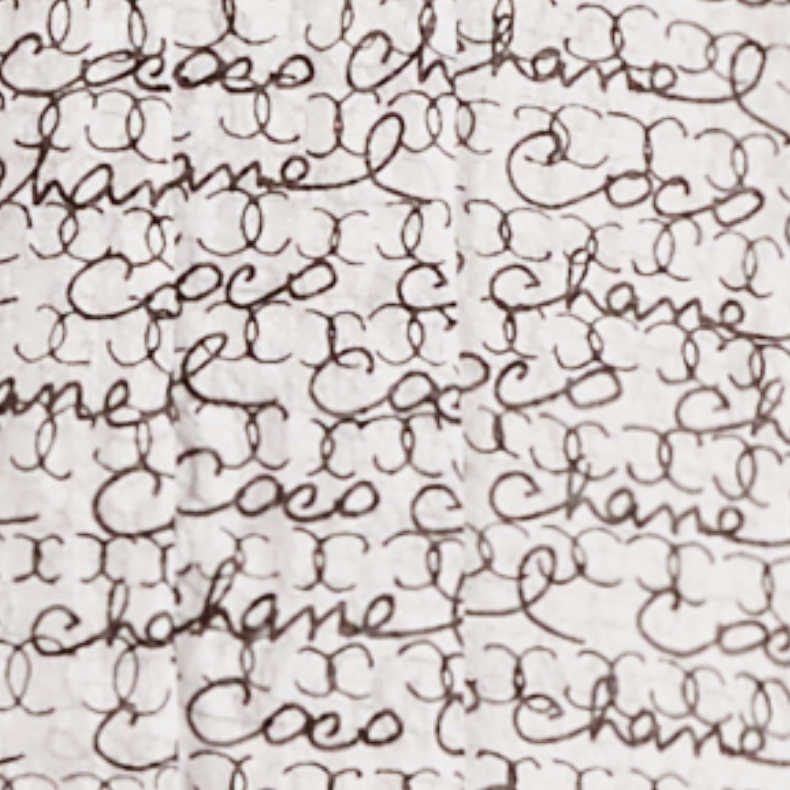 Cococo Chhanel
hannel Coco
Coco C Chane
anel Coco Ch
Coco C Chane
chohanel Coc
C Coco C Chane